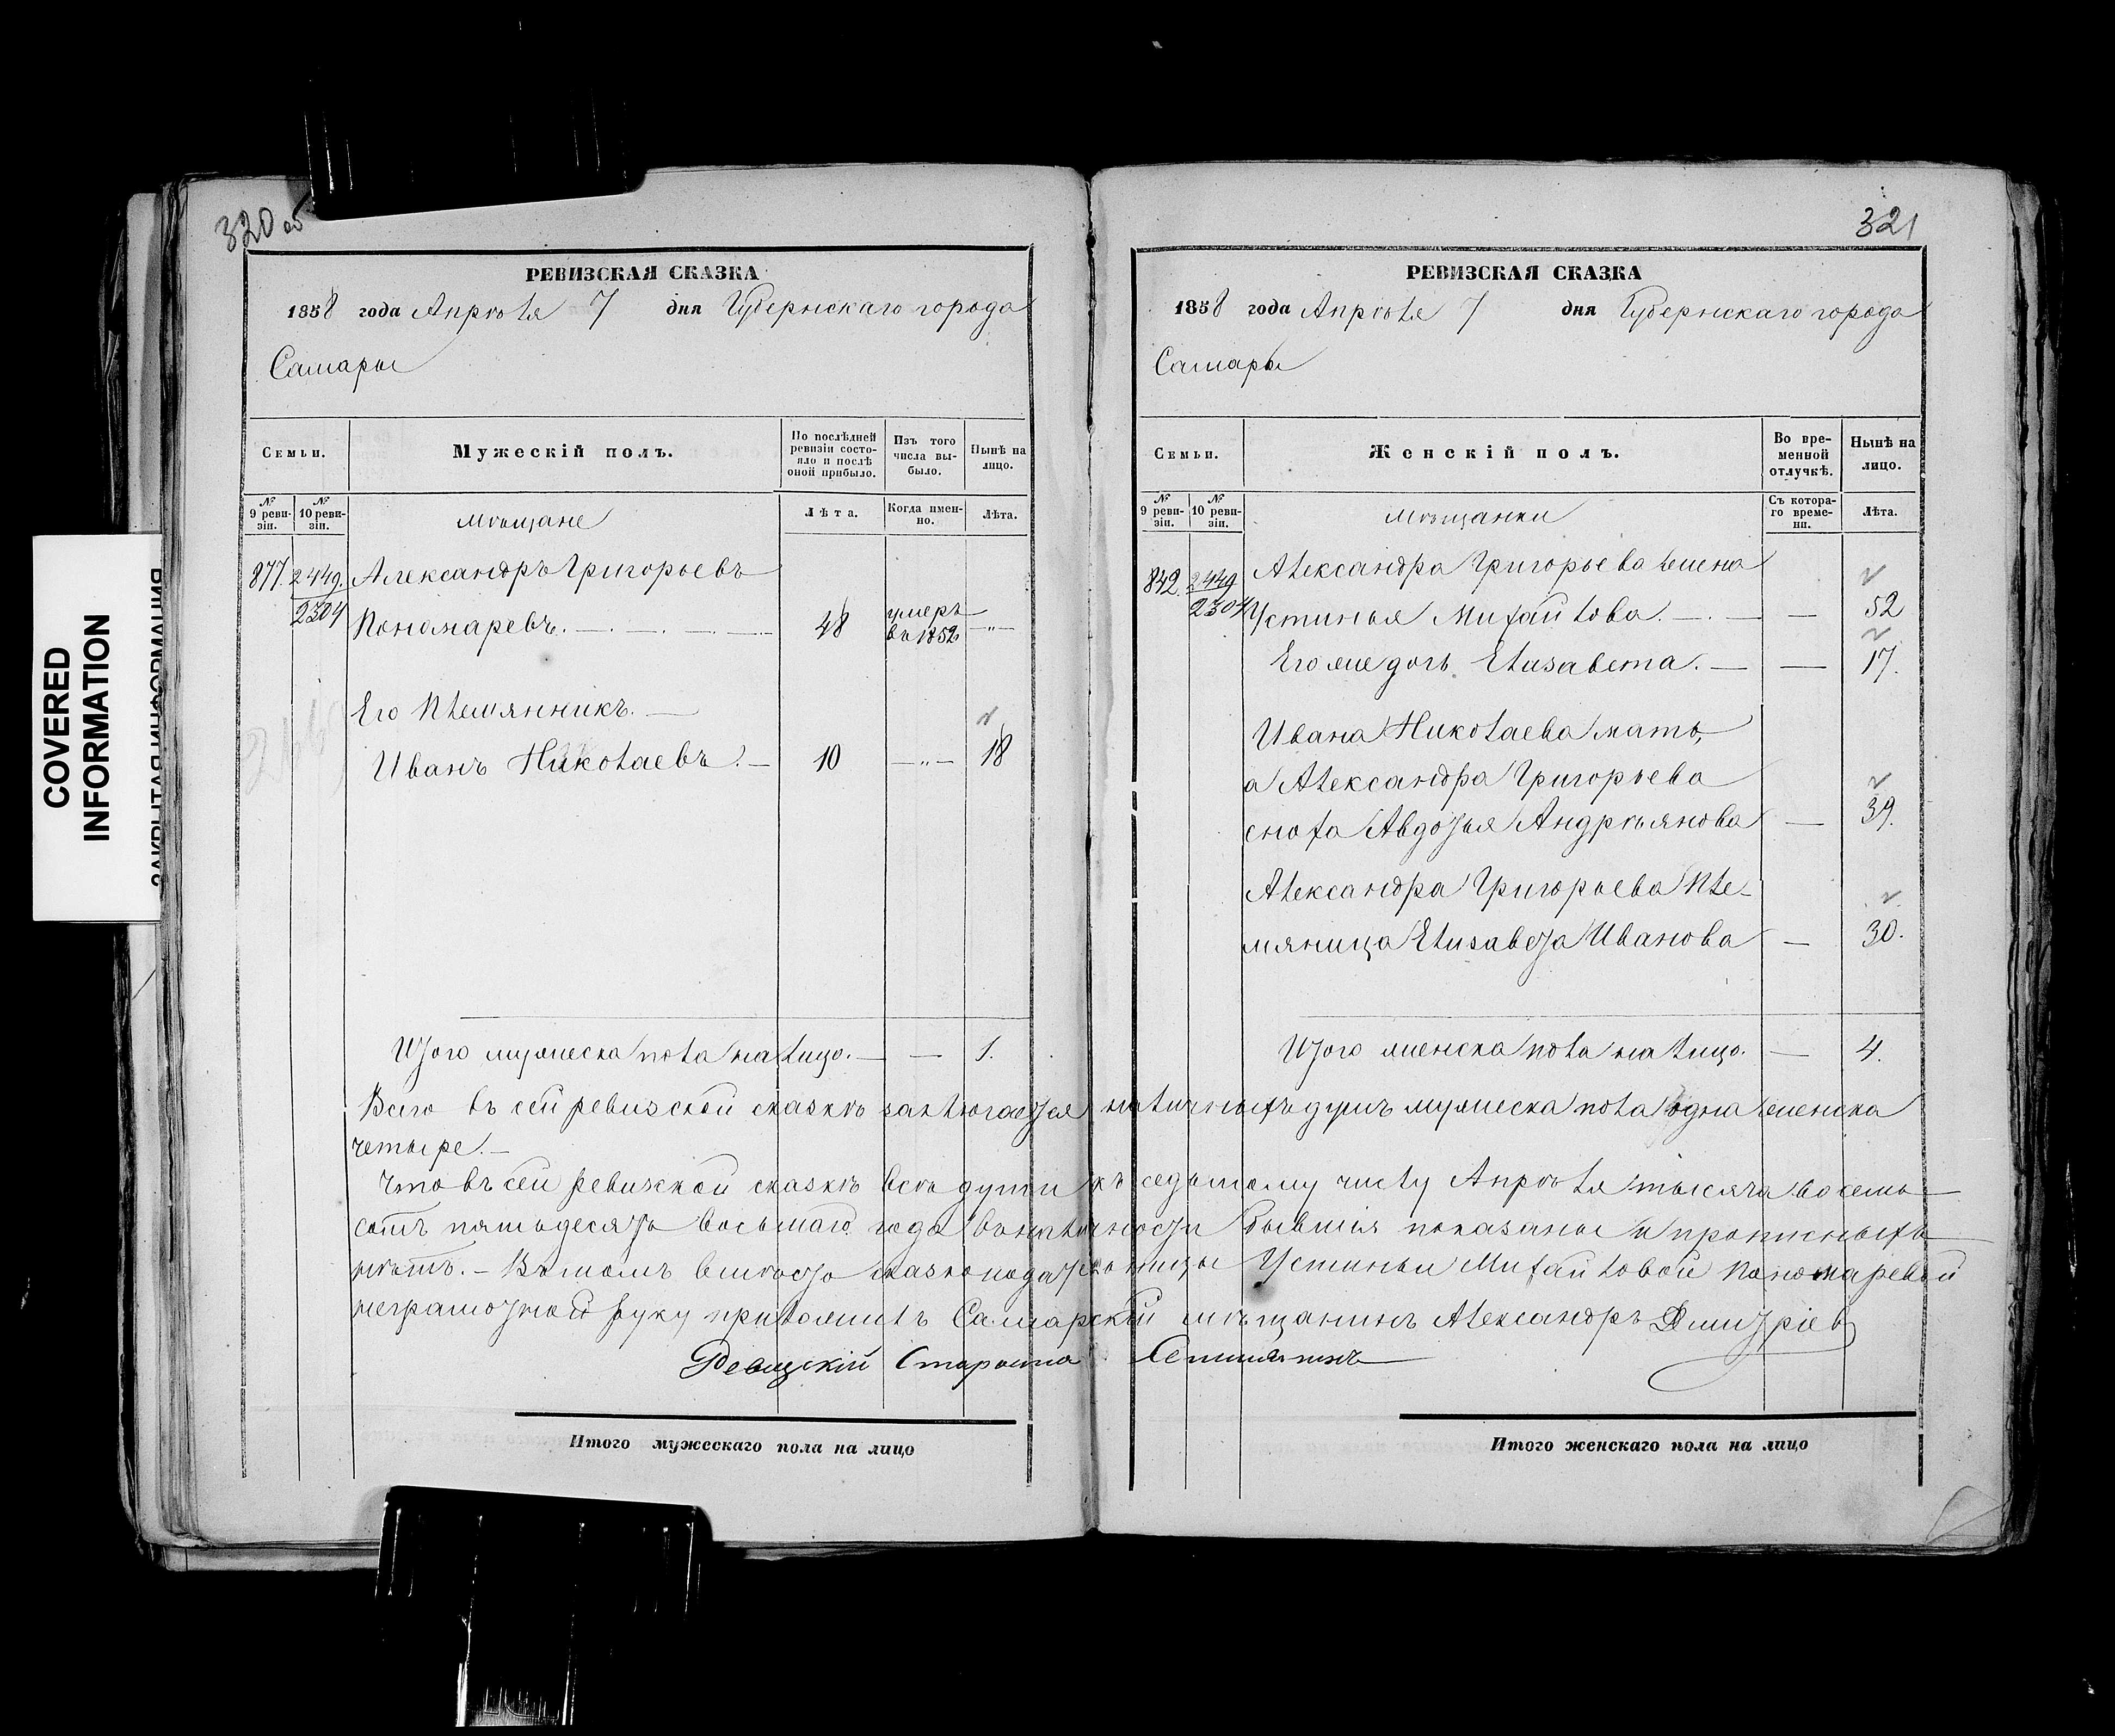 320 об
РЕВИЗСКАЯ СКАЗКА
1858 года Апрѣля 7 дня Губернскаго города
Самары
Семьи.
Мужескій полъ.
По послѣдней ревизіи состояло и послѣ оной прибыло.
Изъ того числа выбыло.
Нынѣ на лицо.
№ 9 ревизіи.
№ 10 ревизіи.
мѣщане
Лѣта.
Когда именно.
Лѣта.
877. 2449. Александръ Григорьевъ
2304 Пономаревъ. 48 умеръ въ 1852 - „ -
Его племянникъ.
Иванъ Николаевъ. 10 - „ - 18
Итого мужеска пола на лицо. — — 1.
321
РЕВИЗСКАЯ СКАЗКА
1858 года Апрѣля 7 дня Губернскаго города
Самары
Семьи.
Женскій полъ.
Во временной отлучкѣ.
Нынѣ на лицо.
№ 9 ревизіи.
№ 10 ревизіи.
мѣщанки
Съ котораго времени.
Лѣта.
842. 2449 Александра Григорьева жена
2304 Устинья Михайлова. — — 52
Его же дочь Елизавета. — — 17.
Ивана Николаева мать,
а Александра Григорьева
сноха Авдотья Андрѣянова — 39.
Александра Григорьева пле-
мяница Елизавета Иванова — 30.
Итого женска пола на лицо. — 4.
Всего въ сей ревизской сказкѣ заключается наличныхъ душъ мужеска пола одна женска
четыре. —
Что въ сей ревизской сказкѣ всѣ души къ седьмому числу Апрѣля тысяча восемь-
сотъ пятьдесятъ восьмаго года въ наличности бывшія показаны и прописныхъ
нѣтъ. — Въ томъ вмѣсто сказкоподательницы Устиньи Михайловой Пономаревой
неграмотной руку приложилъ Самарскій мѣщанинъ Александръ Дмитріев
Ревизскій Староста
Итого мужескаго пола на лицо
Итого женскаго пола на лицо
COVERED
INFORMATION